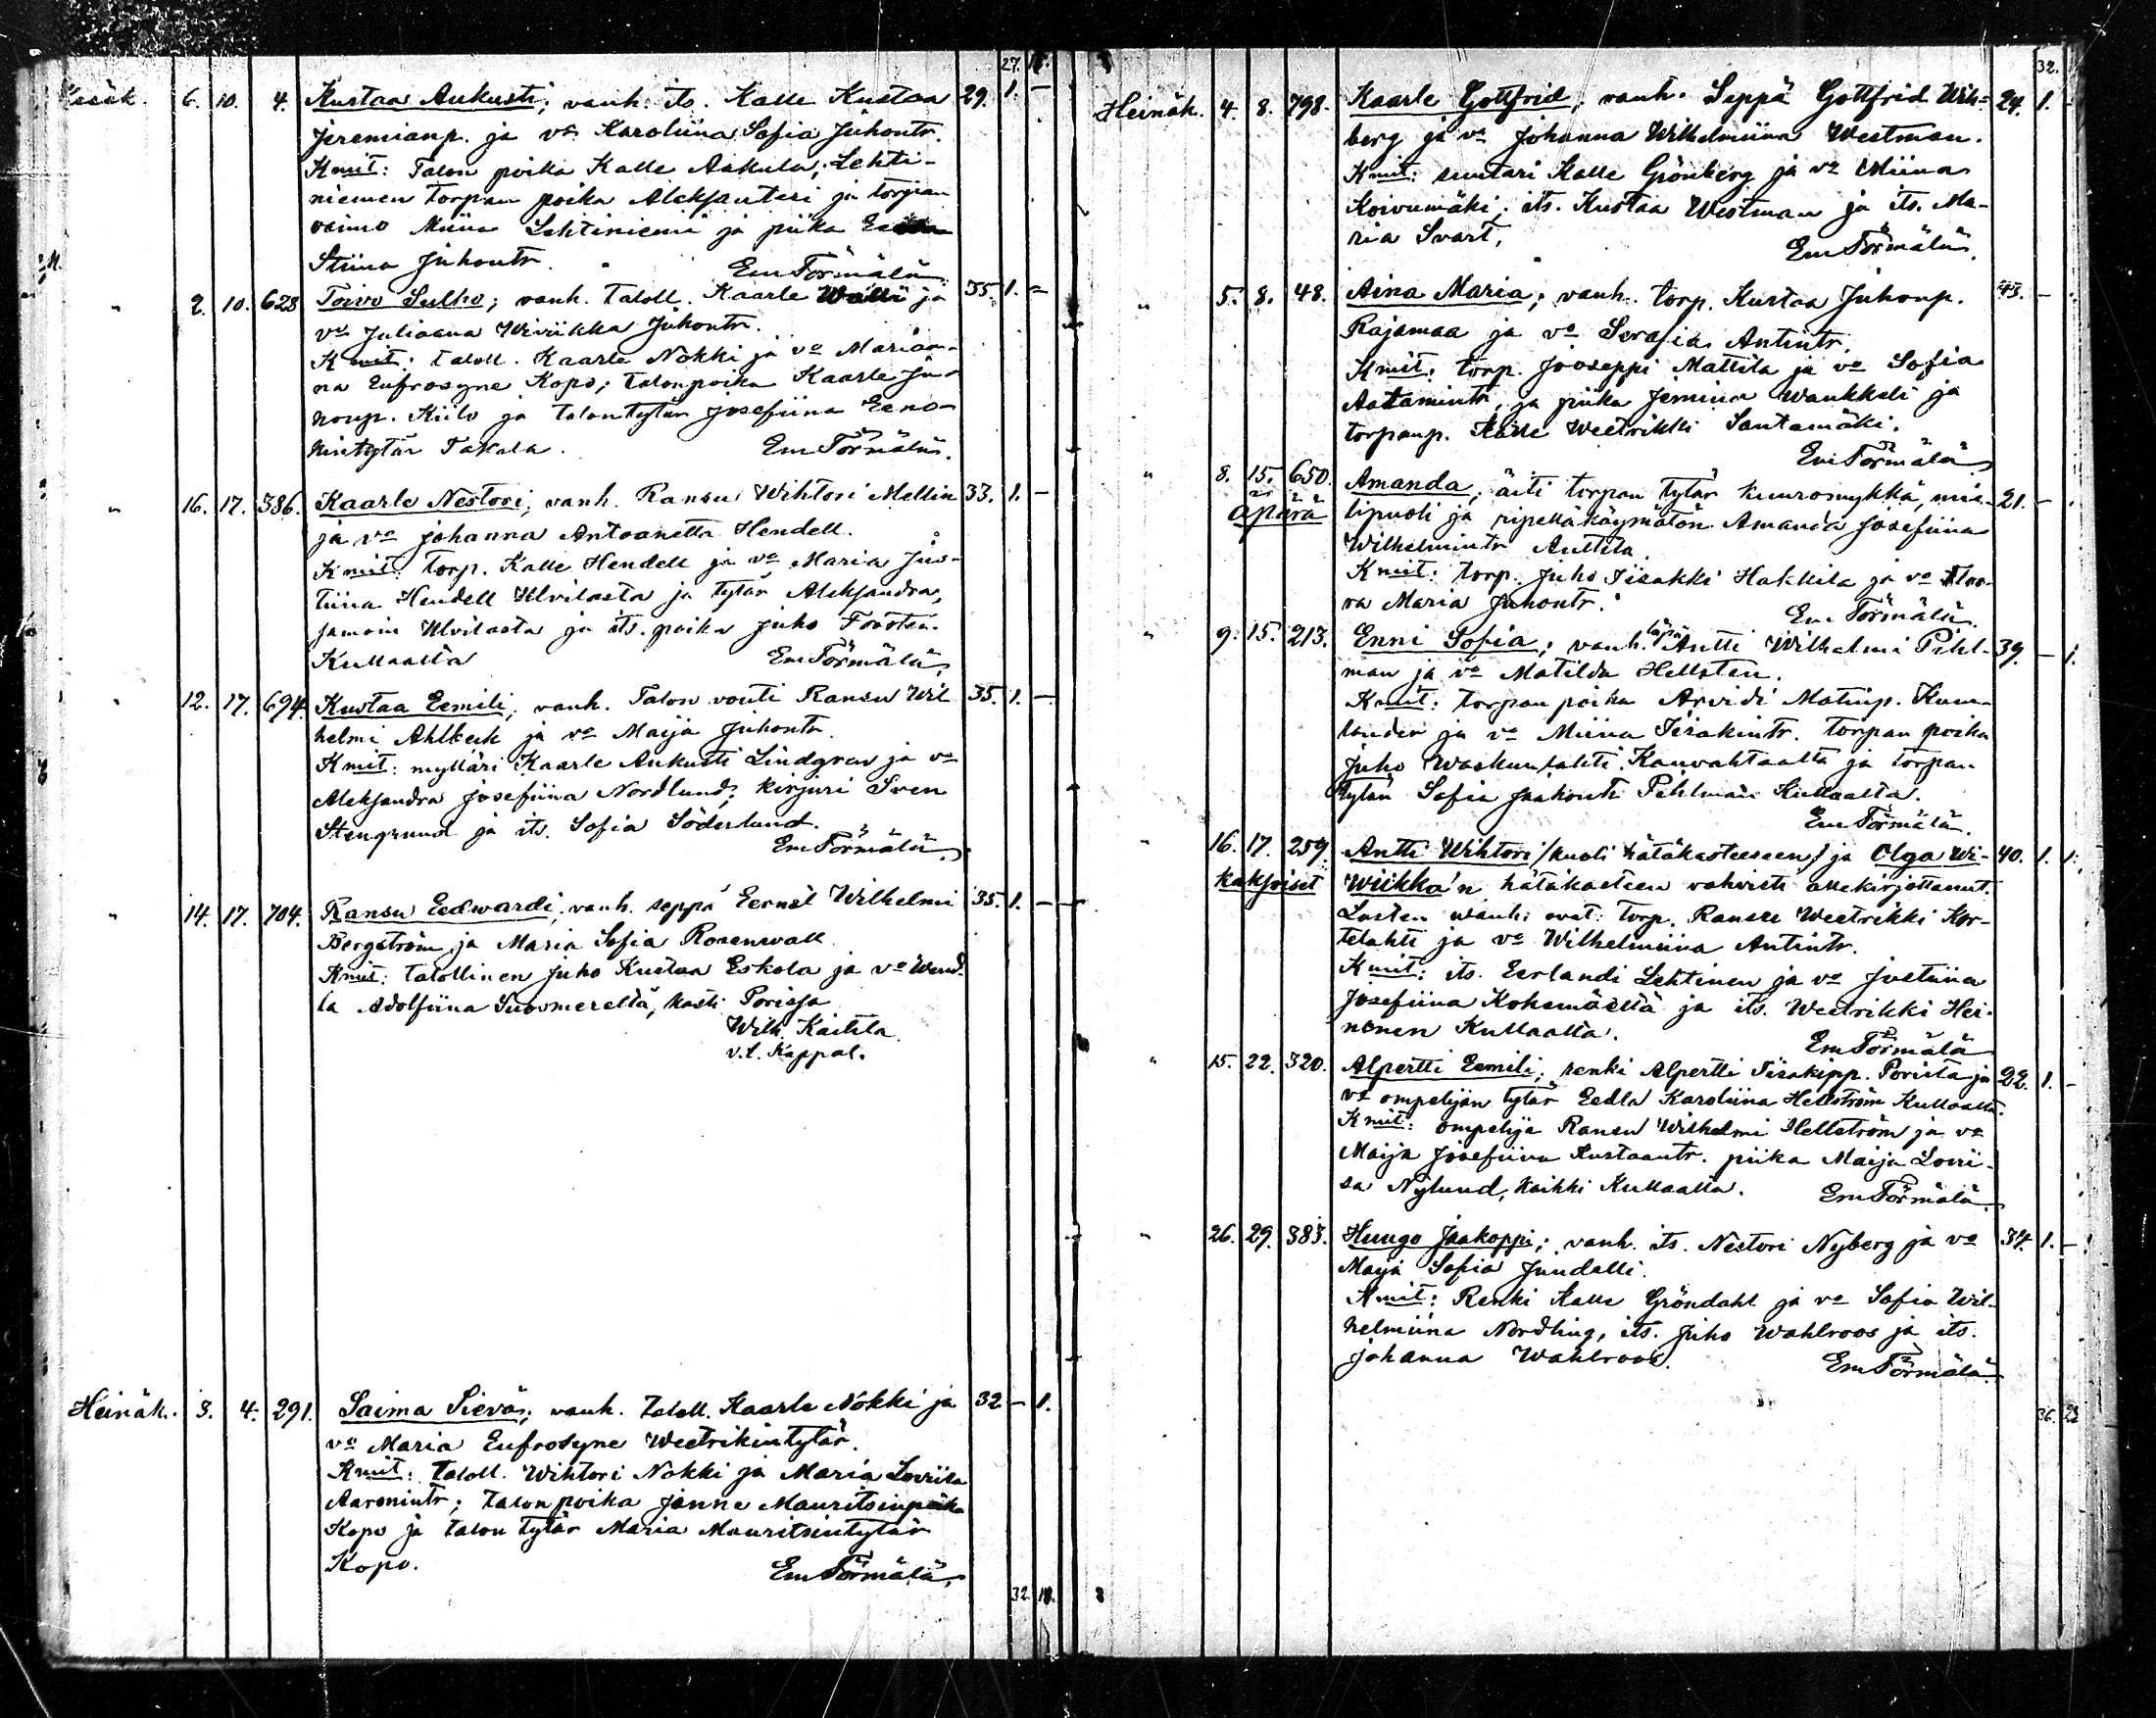 27. 16.
Kesäk. 6. 10. 4. Kustaa Aukusti; vanh. its. Kalle Kustaa 29. 1. –
Jeremianp. ja vo Karoliina Sofia Juhontr.
Kmit: Talon poika Kalle Aakula; Lehti-
niemen torpan poika Aleksanteri ja torpan
vaimo Miina Lehtiniemi ja piika
Stiina Juhontr. Em Törmälä
" 2. 10. 628 Toivo Sulho; vanh. taloll. Kaarle Wälli ja 35. 1. –
vo Juliaana Wiviikka Juhontr.
Kmit: taloll. Kaarle Nokki ja vo Mariaa-
na Eufrosyne Kopo; talonpoika Kaarle Ju-
honp. Kiilo ja talontytär Josefiina Eeno-
kintytär Takala. Em Törmälä.
" 16. 17. 386. Kaarle Nestori; vanh. Ransu Wihtori Mellin 33. 1. –
ja vo Johanna Antoanetta Hendell.
Kmit: torp. Kalle Hendell ja vo Maria Jus-
tiina Hendell Ulvilasta ja tytär Aleksandra,
samoin Ulvilasta ja its. poika Juho Forsten
Kullaalta Em Törmälä,
" 12. 17. 694. Kustaa Eemili; vanh. Talon vouti Ransu Wil 35. 1. –
helmi Ahlbeck ja vo Maija Juhontr.
Kmit: mylläri Kaarle Aukusti Lindgren ja vo
Aleksandra Josefiina Nordlund; kirjuri Sven
Stengrund ja its. Sofia Söderlund.
Em Törmälä.
" 14. 17. 704. Ransu Eedwardi; vanh. seppä Eernst Wilhelmi 35. 1. –
Bergström ja Maria Sofia Rosenwall
Kmit: talollinen Juho Kustaa Eskola ja vo Wend-
la Adolfiina Suosmerelta, kasti Porissa
Wilh. Kaitila
v.t. Kappal.
Heinäk. 3. 4. 291. Saima Sievä; vanh. taloll. Kaarle Nokki ja 32 – 1.
vo Maria Eufrosyne Weetrikintytär.
Kmit: taloll. Wihtori Nokki ja Maria Loviisa
Aaronintr; talon poika Janne Mauritsinpoika
Kopo ja talon tytär Maria Mauritsintytär
Kopo. Em Törmälä,
32. 18.
32.
Heinäk. 4. 8. 798. Kaarle Gottfrid; vanh. Seppä Gottfrid Wih- 24. 1. –
berg ja vo Johanna Wilhelmiina Westman.
Kmit: suutari Kalle Grönberg ja vo Miina
Koivumäki; its. Kustaa Westman ja its. Ma-
ria Svart. Em Törmälä.
" 5. 8. 48. Aina Maria; vanh. torp. Kustaa Juhonp. 43. – 1.
Rajamaa ja vo Serafia Antintr.
Kmit: torp. Jooseppi Mattila ja vo Sofia
Aatamintr, ja piika Jemina Wankkeli ja
torpanp. Kalle Weetrikki Santamäki.
Em Törmälä
" 8. 15. 650. Amanda; äiti torpan tytär kuuromykkä, mie- 21. – 1.
äpärä lipuoli ja ripelläkäymätön Amanda Josefiina
Wilhelmintr Anttila.
Kmit: torp. Juho Iisakki Hakkila ja vo Loo-
ra Maria Juhontr. Em Törmälä.
" 9. 15. 213. Enni Sofia; vanh. Antti Wilhelmi Pihl- 39. – 1.
man ja vo Matilda Hellsten.
Kmit: torpan poika Arvidi Matinp. Kum-
lander ja vo Miina Iisakintr. torpan poika
Juho Waskunlahti Kauvahtaalta ja torpan
tytär Sofia Jaakontr Pihlman Kullaalta.
Em Törmälä.
" 16. 17. 259. Antti Wihtori (kuoli hätäkasteeseen) ja Olga Wi- 40. 1. 1.
kaksoiset wiikka'n hätäkasteen vahvisti allekirjottanut.
Lasten vanh. ovat: torp. Ransu Weetrikki Kor-
telahti ja vo Wilhelmiina Antintr.
Kmit: its. Eerlandi Lehtinen ja vo Justiina
Josefiina Kokemäeltä ja its. Weetrikki Hei-
nonen Kullaalta. Em Törmälä
" 15. 22. 320. Alpertti Eemili; renki Alpertti Iisakinp. Porista ja 22. 1. –
vo ompelijan tytär Eedla Karoliina Hellström Kullaalta.
Kmit: ompelija Ransu Wilhelmi Hellström ja vo
Maija Josefiina Kustaantr. piika Maija Lovii-
sa Nylund, kaikki Kullaalta. Em Törmälä
" 26. 29. 383. Huugo Jaakoppi; vanh. its. Nestori Nyberg ja vo 34. 1. –
Maija Sofia Jundalli.
Kmit: Renki Kalle Gröndahl ja vo Sofia Wil-
helmiina Nordling, its. Juho Wahlroos ja its.
Johanna Wahlroos. Em Törmälä
36. 23